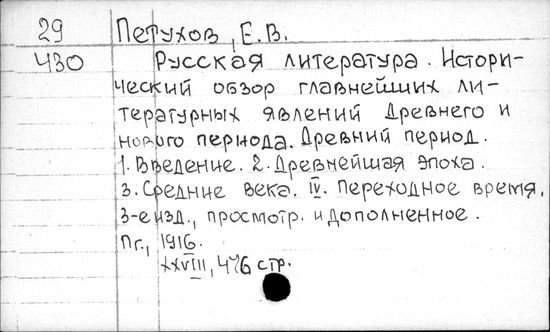 29 Петухов, Е.В.
430 Русская литература. Истори-
ческий обзор главнейших ли-
тературных явлений Древнего и
нового периода. Древний период.
1. Введение. 2. Древнейшая эпоха.
3. Средние века. IV. Переходное время.
3-е изд., просмотр. и дополненное.
Пг., 1916.
XXVIII, 476 стр.